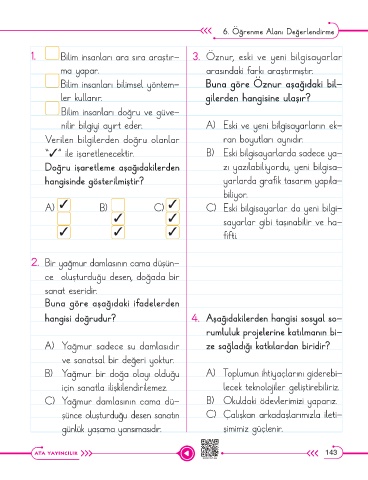 6. Öğrenme Alanı Değerlendirme
1. Bilim insanları ara sıra araştır-
ma yapar.
Bilim insanları bilimsel yöntem-
ler kullanır.
Bilim insanları doğru ve güve-
nilir bilgiyi ayırt eder.
Verilen bilgilerden doğru olanlar
"✓" ile işaretlenecektir.
Doğru işaretleme aşağıdakilerden
hangisinde gösterilmiştir?
A) ✓ B) C) ✓
✓ ✓
✓ ✓ ✓
2. Bir yağmur damlasının cama düşün-
ce oluşturduğu desen, doğada bir
sanat eseridir.
Buna göre aşağıdaki ifadelerden
hangisi doğrudur?
A) Yağmur sadece su damlasıdır
ve sanatsal bir değeri yoktur.
B) Yağmur bir doğa olayı olduğu
için sanatla ilişkilendirilemez.
C) Yağmur damlasının cama dü-
şünce oluşturduğu desen sanatın
günlük yaşama yansımasıdır.
3. Öznur, eski ve yeni bilgisayarlar
arasındaki farkı araştırmıştır.
Buna göre Öznur aşağıdaki bil-
gilerden hangisine ulaşır?
A) Eski ve yeni bilgisayarların ek-
ran boyutları aynıdır.
B) Eski bilgisayarlarda sadece ya-
zı yazılabiliyordu, yeni bilgisa-
yarlarda grafik tasarım yapıla-
biliyor.
C) Eski bilgisayarlar da yeni bilgi-
sayarlar gibi taşınabilir ve ha-
fifti.
4. Aşağıdakilerden hangisi sosyal so-
rumluluk projelerine katılmanın bi-
ze sağladığı katkılardan biridir?
A) Toplumun ihtiyaçlarını giderebi-
lecek teknolojiler geliştirebiliriz.
B) Okuldaki ödevlerimizi yaparız.
C) Çalışkan arkadaşlarımızla ileti-
şimimiz güçlenir.
ATA YAYINCILIK
143